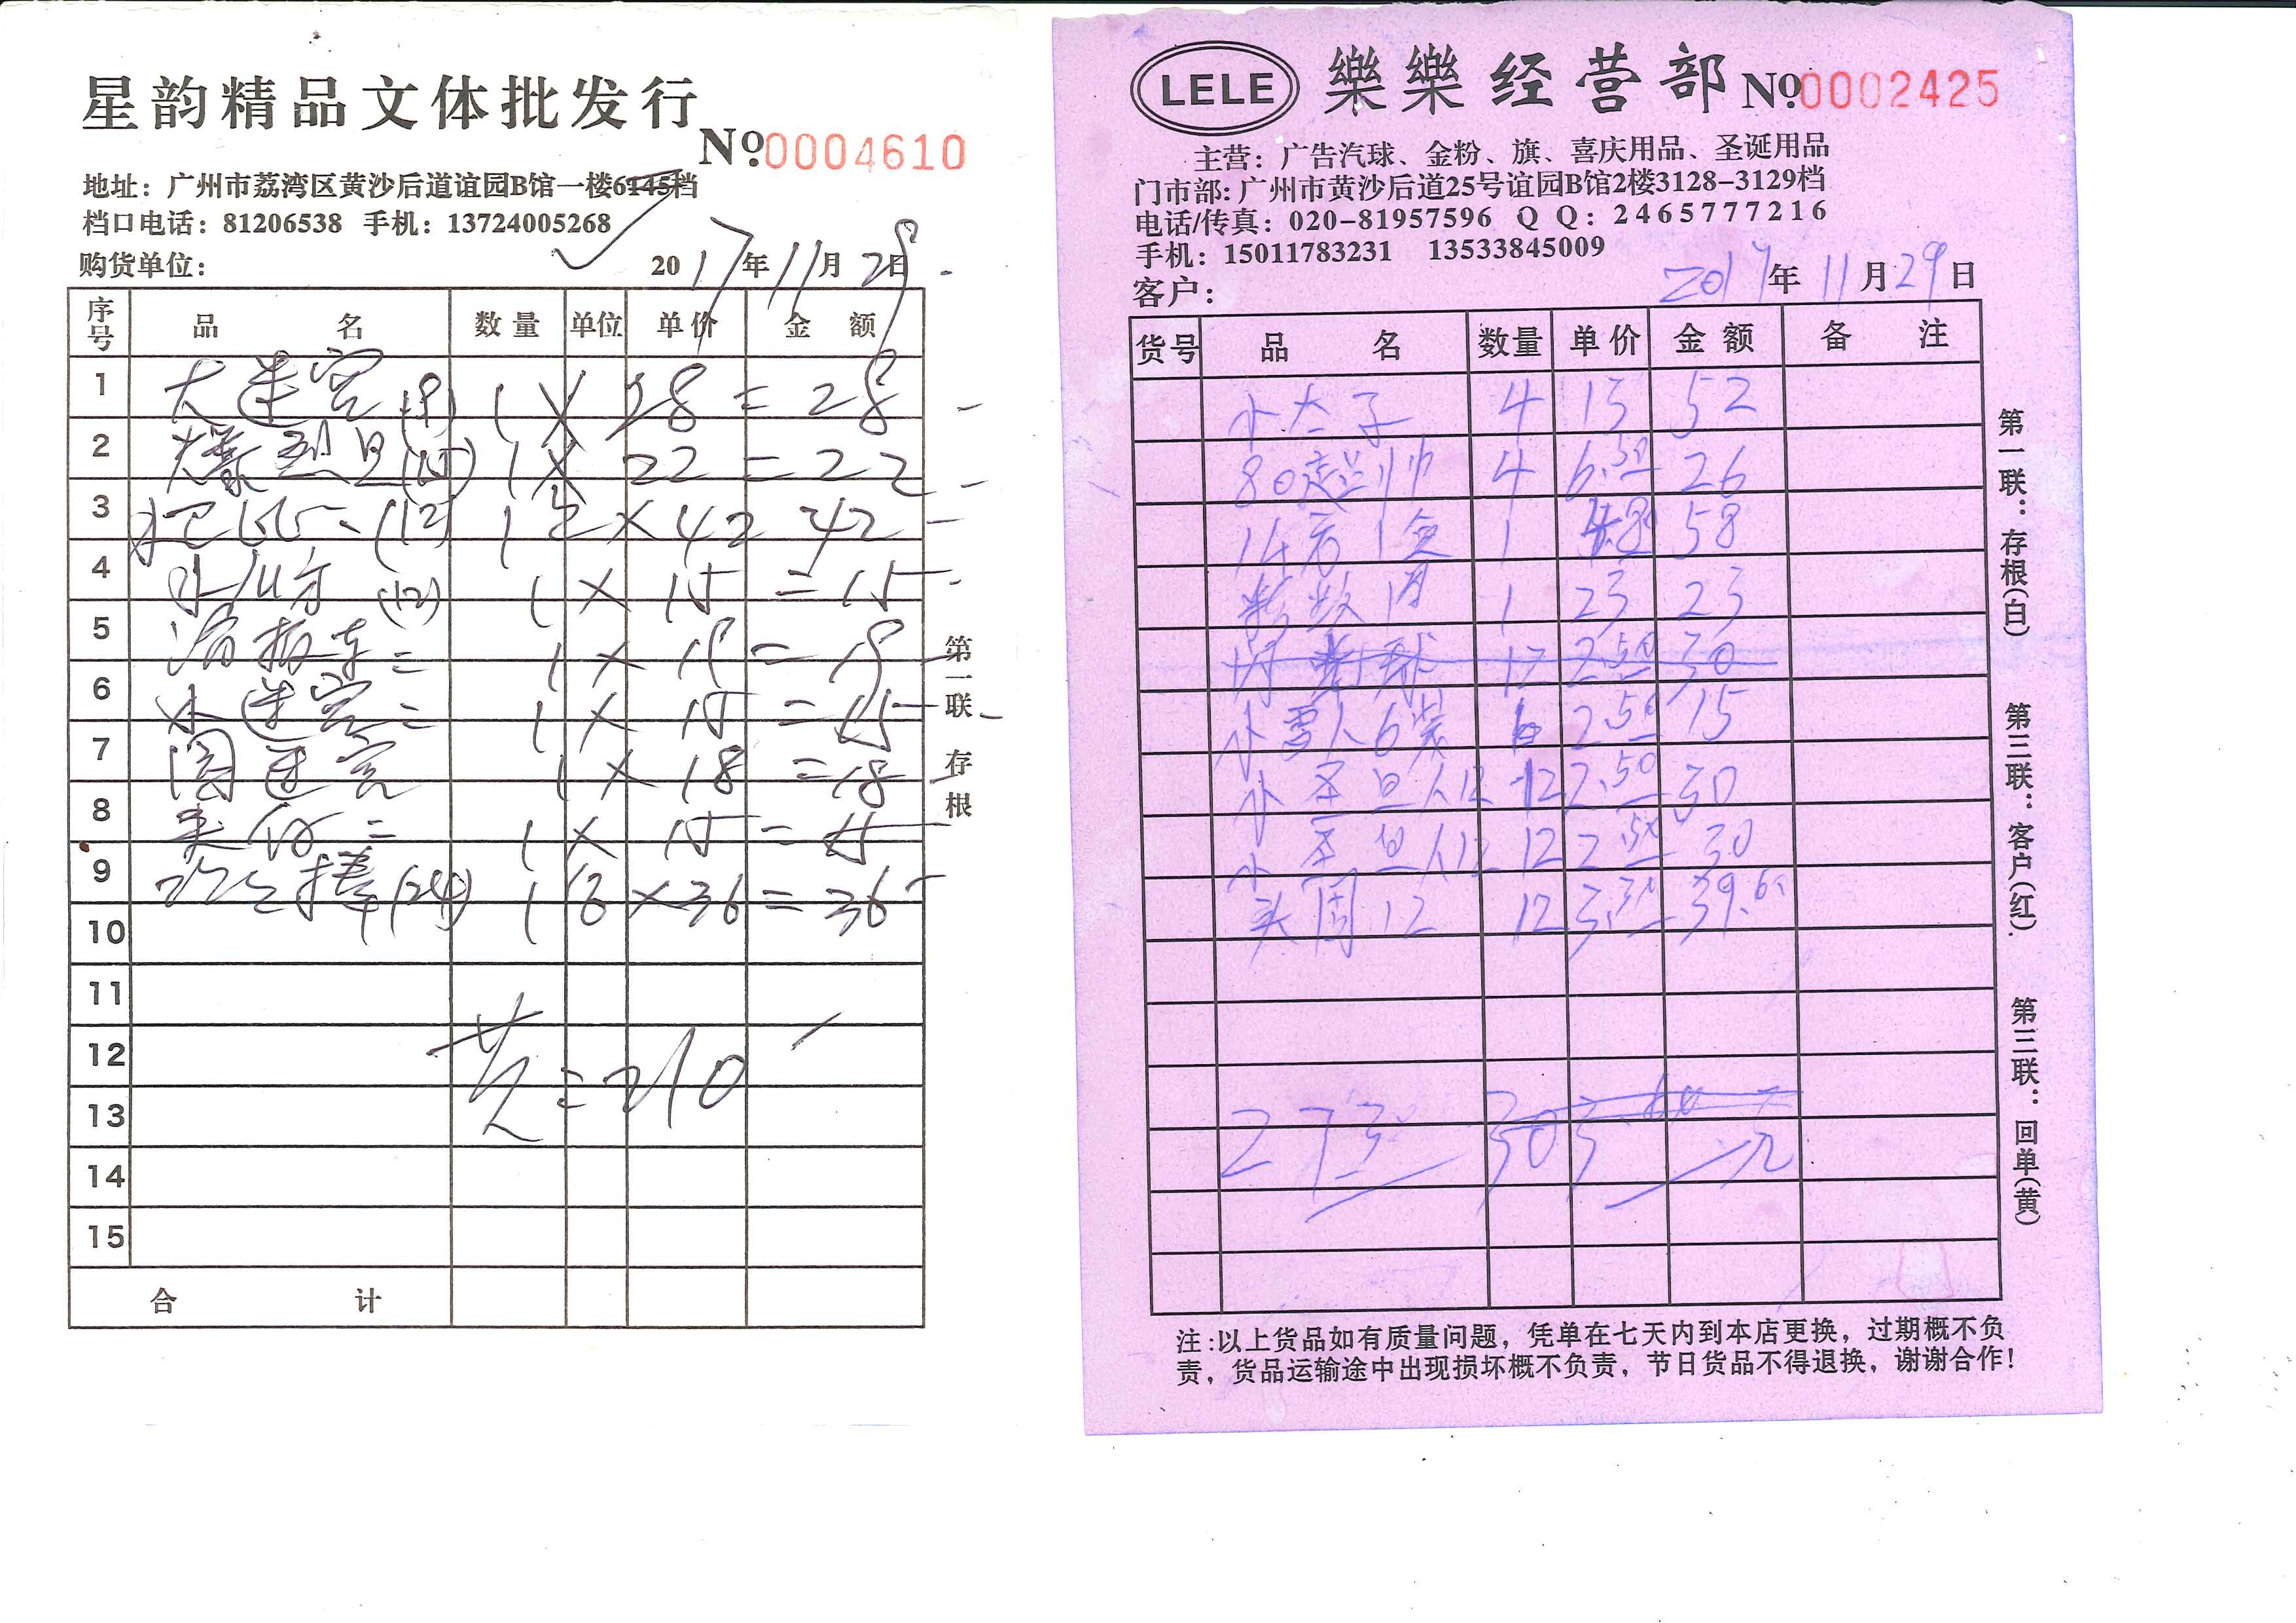 星韵精品文体批发行
No.0004610
地址：广州市荔湾区黄沙后道谊园B馆一楼6145档
档口电话：81206538 手机：13724005268
购货单位：
2017年11月28日
序号 品 名 数量 单位 单价 金 额
1 大迷宫 1 X 28 = 28
2 1 X 22 = 22
3 (12) 1 X 42 42
4 (12) 1 X 15 = 15
5 滑板车 = 1 X 18 = 18
6 小迷宫 = 1 X 15 = 15
7 迷宫 1 X 18 = 18
8 = 1 X 15 = 15
9 棒(24) 1 X 36 = 36
10
11
12
13
共=210
14
15
合 计
第一联 存根
LELE 樂樂经营部 No.0002425
主营：广告汽球、金粉、旗、喜庆用品、圣诞用品
门市部：广州市黄沙后道25号谊园B馆2楼3128-3129档
电话/传真：020-81957596 QQ：2465777216
手机：15011783231 13533845009
客户：
2017年11月29日
货号 品 名 数量 单价 金额 备 注
小太子 4 13 52
4 6.50 26
1 58 58
1 23 23
12 2.50 30
小雪人6装 6 2.50 15
小圣旦人12 12 2.50 30
小圣旦人12 12 2.50 30
12 12 3.30 39.60
273 303.60元
第一联：存根(白)
第三联：客户(红).
第三联：回单(黄)
注：以上货品如有质量问题，凭单在七天内到本店更换，过期概不负
责，货品运输途中出现损坏概不负责，节日货品不得退换，谢谢合作！